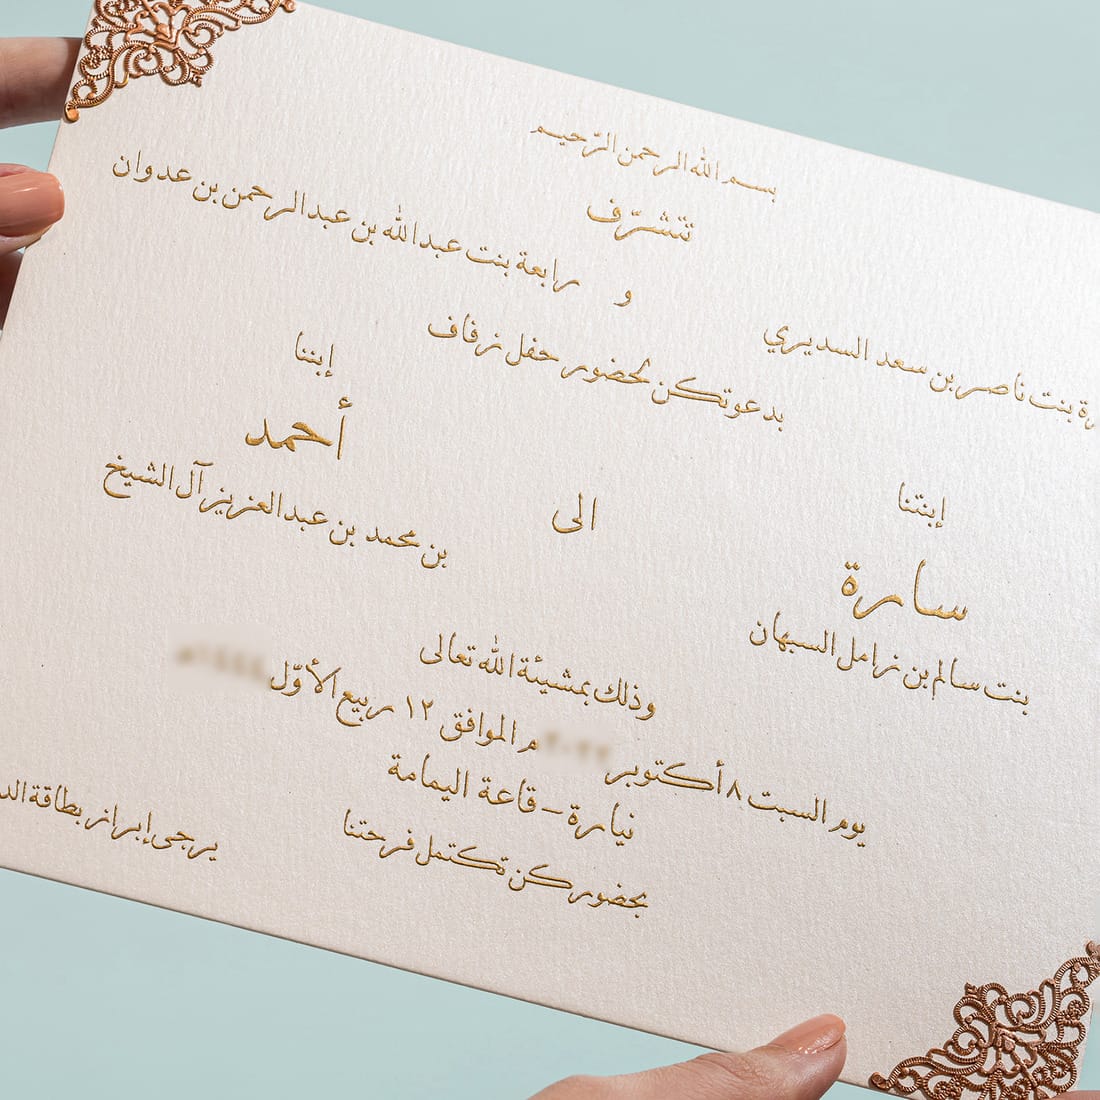 بسم الله الرحمن الرّحيم
تتشرّف
بنت ناصر بن سعد السديري
و
رابعة بنت عبدالله بن عبدالرحمن بن عدوان
بدعوتكن لحضور حفل زفاف
إبنتنا
سارة
بنت سالم بن زامل السبهان
الى
إبننا
أحمد
بن محمد بن عبدالعزيز آل الشيخ
وذلك بمشيئة الله تعالى
يوم السبت ٨ أكتوبر م الموافق ١٢ ربيع الأوّل
نيارة - قاعة اليمامة
بحضوركن تكتمل فرحتنا
يرجى إبراز بطاقة